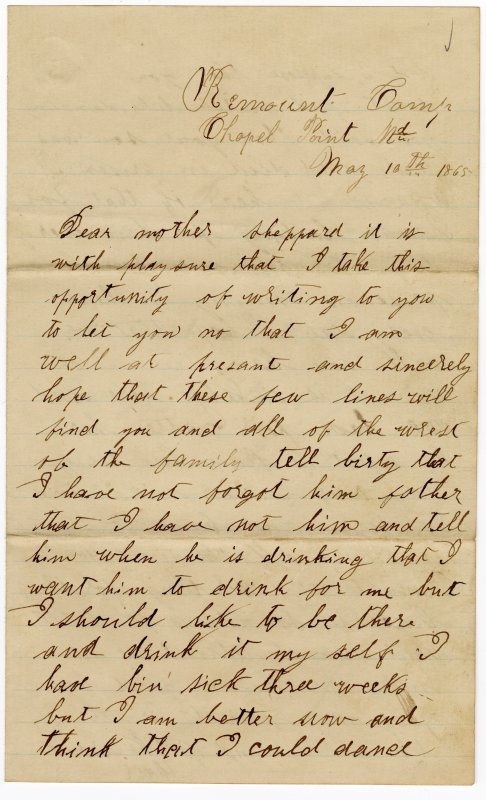 Remount Camp
Chapel Point Md
May 10th 1865
Dear mother sheppard it is
with playsure that I take this
opportunity of writing to you
to let you no that I am
well at presant and sincerely
hope that these few lines will
find you and all of the wrest
of the family tell birty that
I have not forgot him father
that I have not him and tell
him when he is drinking that I
want him to drink for me but
I should like to be there
and drink it my self I
had bin sick three weeks
but I am better now and
think that I could dance